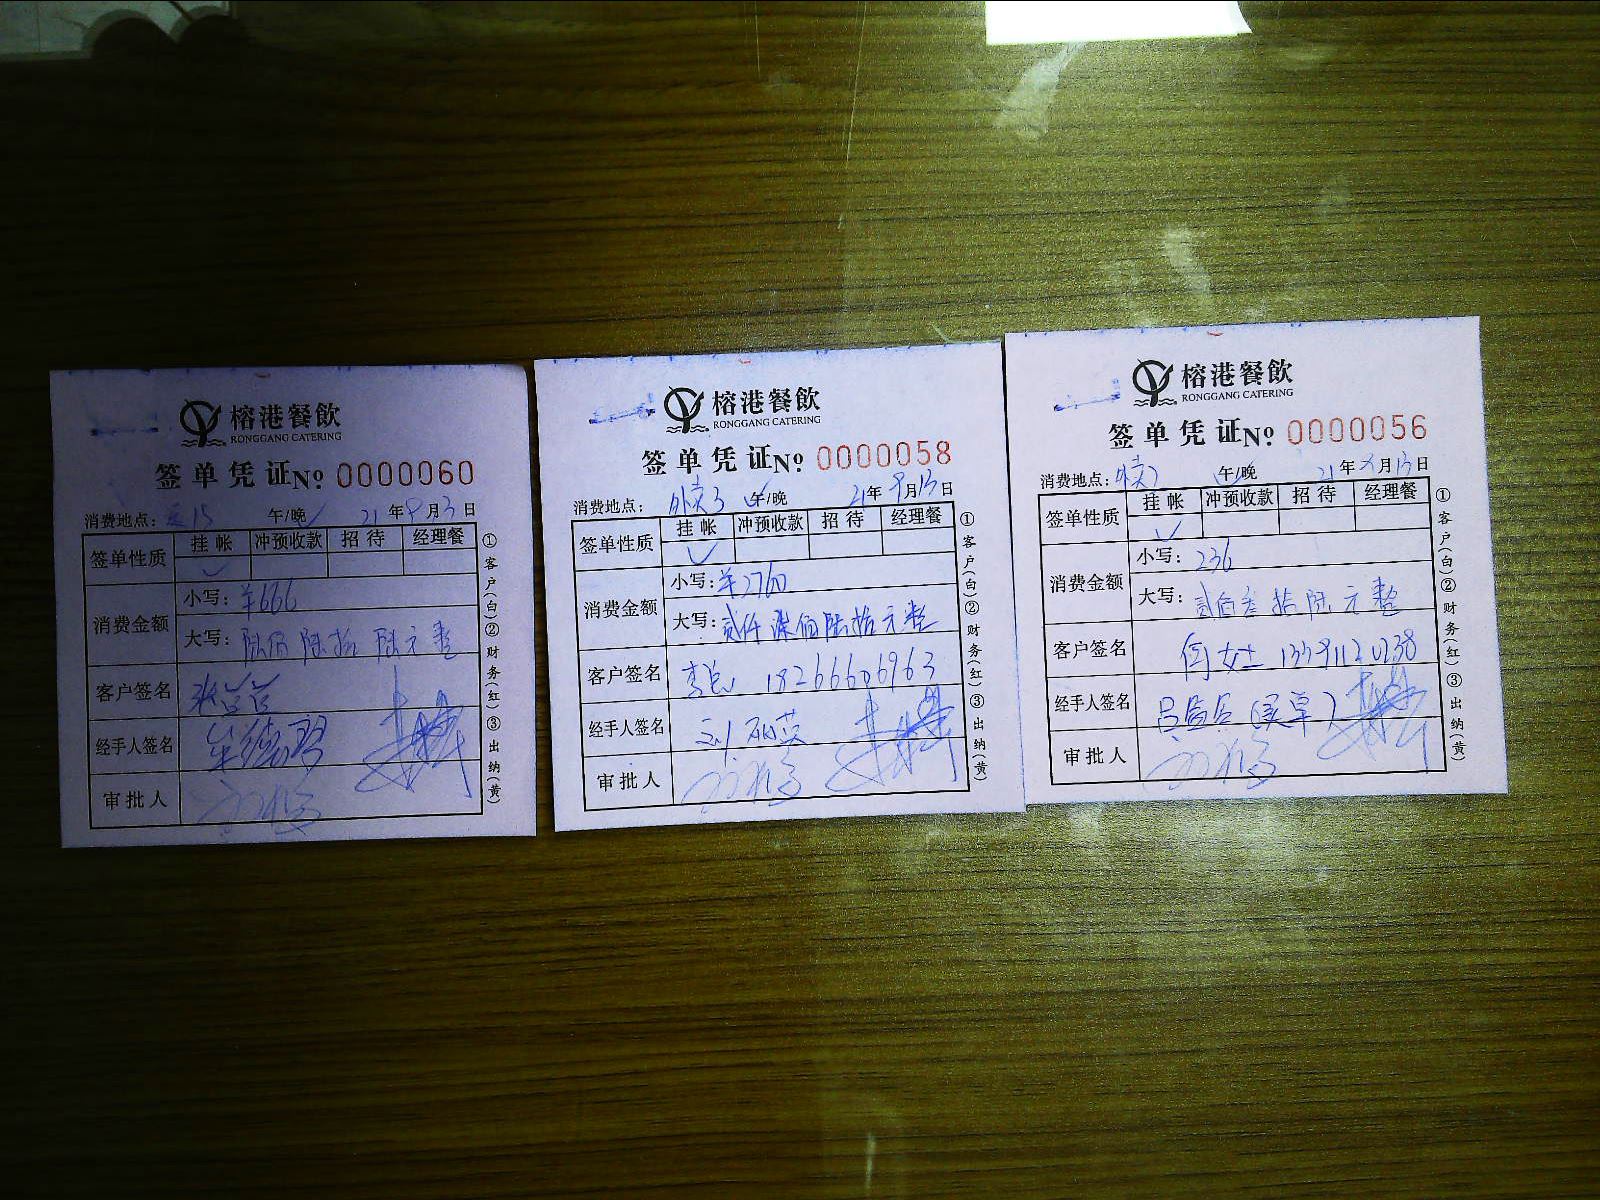 榕港餐飲
RONGGANG CATERING
签单凭证 No 0000060
消费地点: 15 午/晚 21年9月13日
签单性质 挂帐 冲预收款 招待 经理餐
✓
消费金额
小写: ¥666
大写: 陆佰陆拾陆元整
客户签名
经手人签名
审批人
①客户(白)②财务(红)③出纳(黄)
榕港餐飲
RONGGANG CATERING
签单凭证 No 0000058
消费地点: 外卖3 午/晚 21年9月13日
签单性质 挂帐 冲预收款 招待 经理餐
✓
消费金额
小写: ¥2760
大写: 贰仟柒佰陆拾元整
客户签名 李总 18266606963
经手人签名 刘丽萍
审批人
①客户(白)②财务(红)③出纳(黄)
榕港餐飲
RONGGANG CATERING
签单凭证 No 0000056
消费地点: 外卖 午/晚 21年 月13日
签单性质 挂帐 冲预收款 招待 经理餐
✓
消费金额
小写: 236
大写: 贰佰叁拾陆元整
客户签名 闫女士
经手人签名
审批人
①客户(白)②财务(红)③出纳(黄)